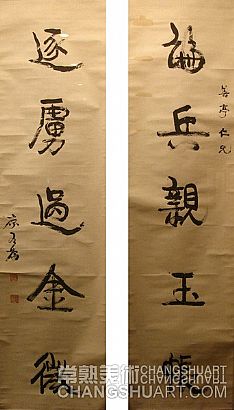 善亭仁兄
論兵親玉帳
逐虜過金微
康有為
常熟美術CHANGSHUART
CHANGSHUART.COM